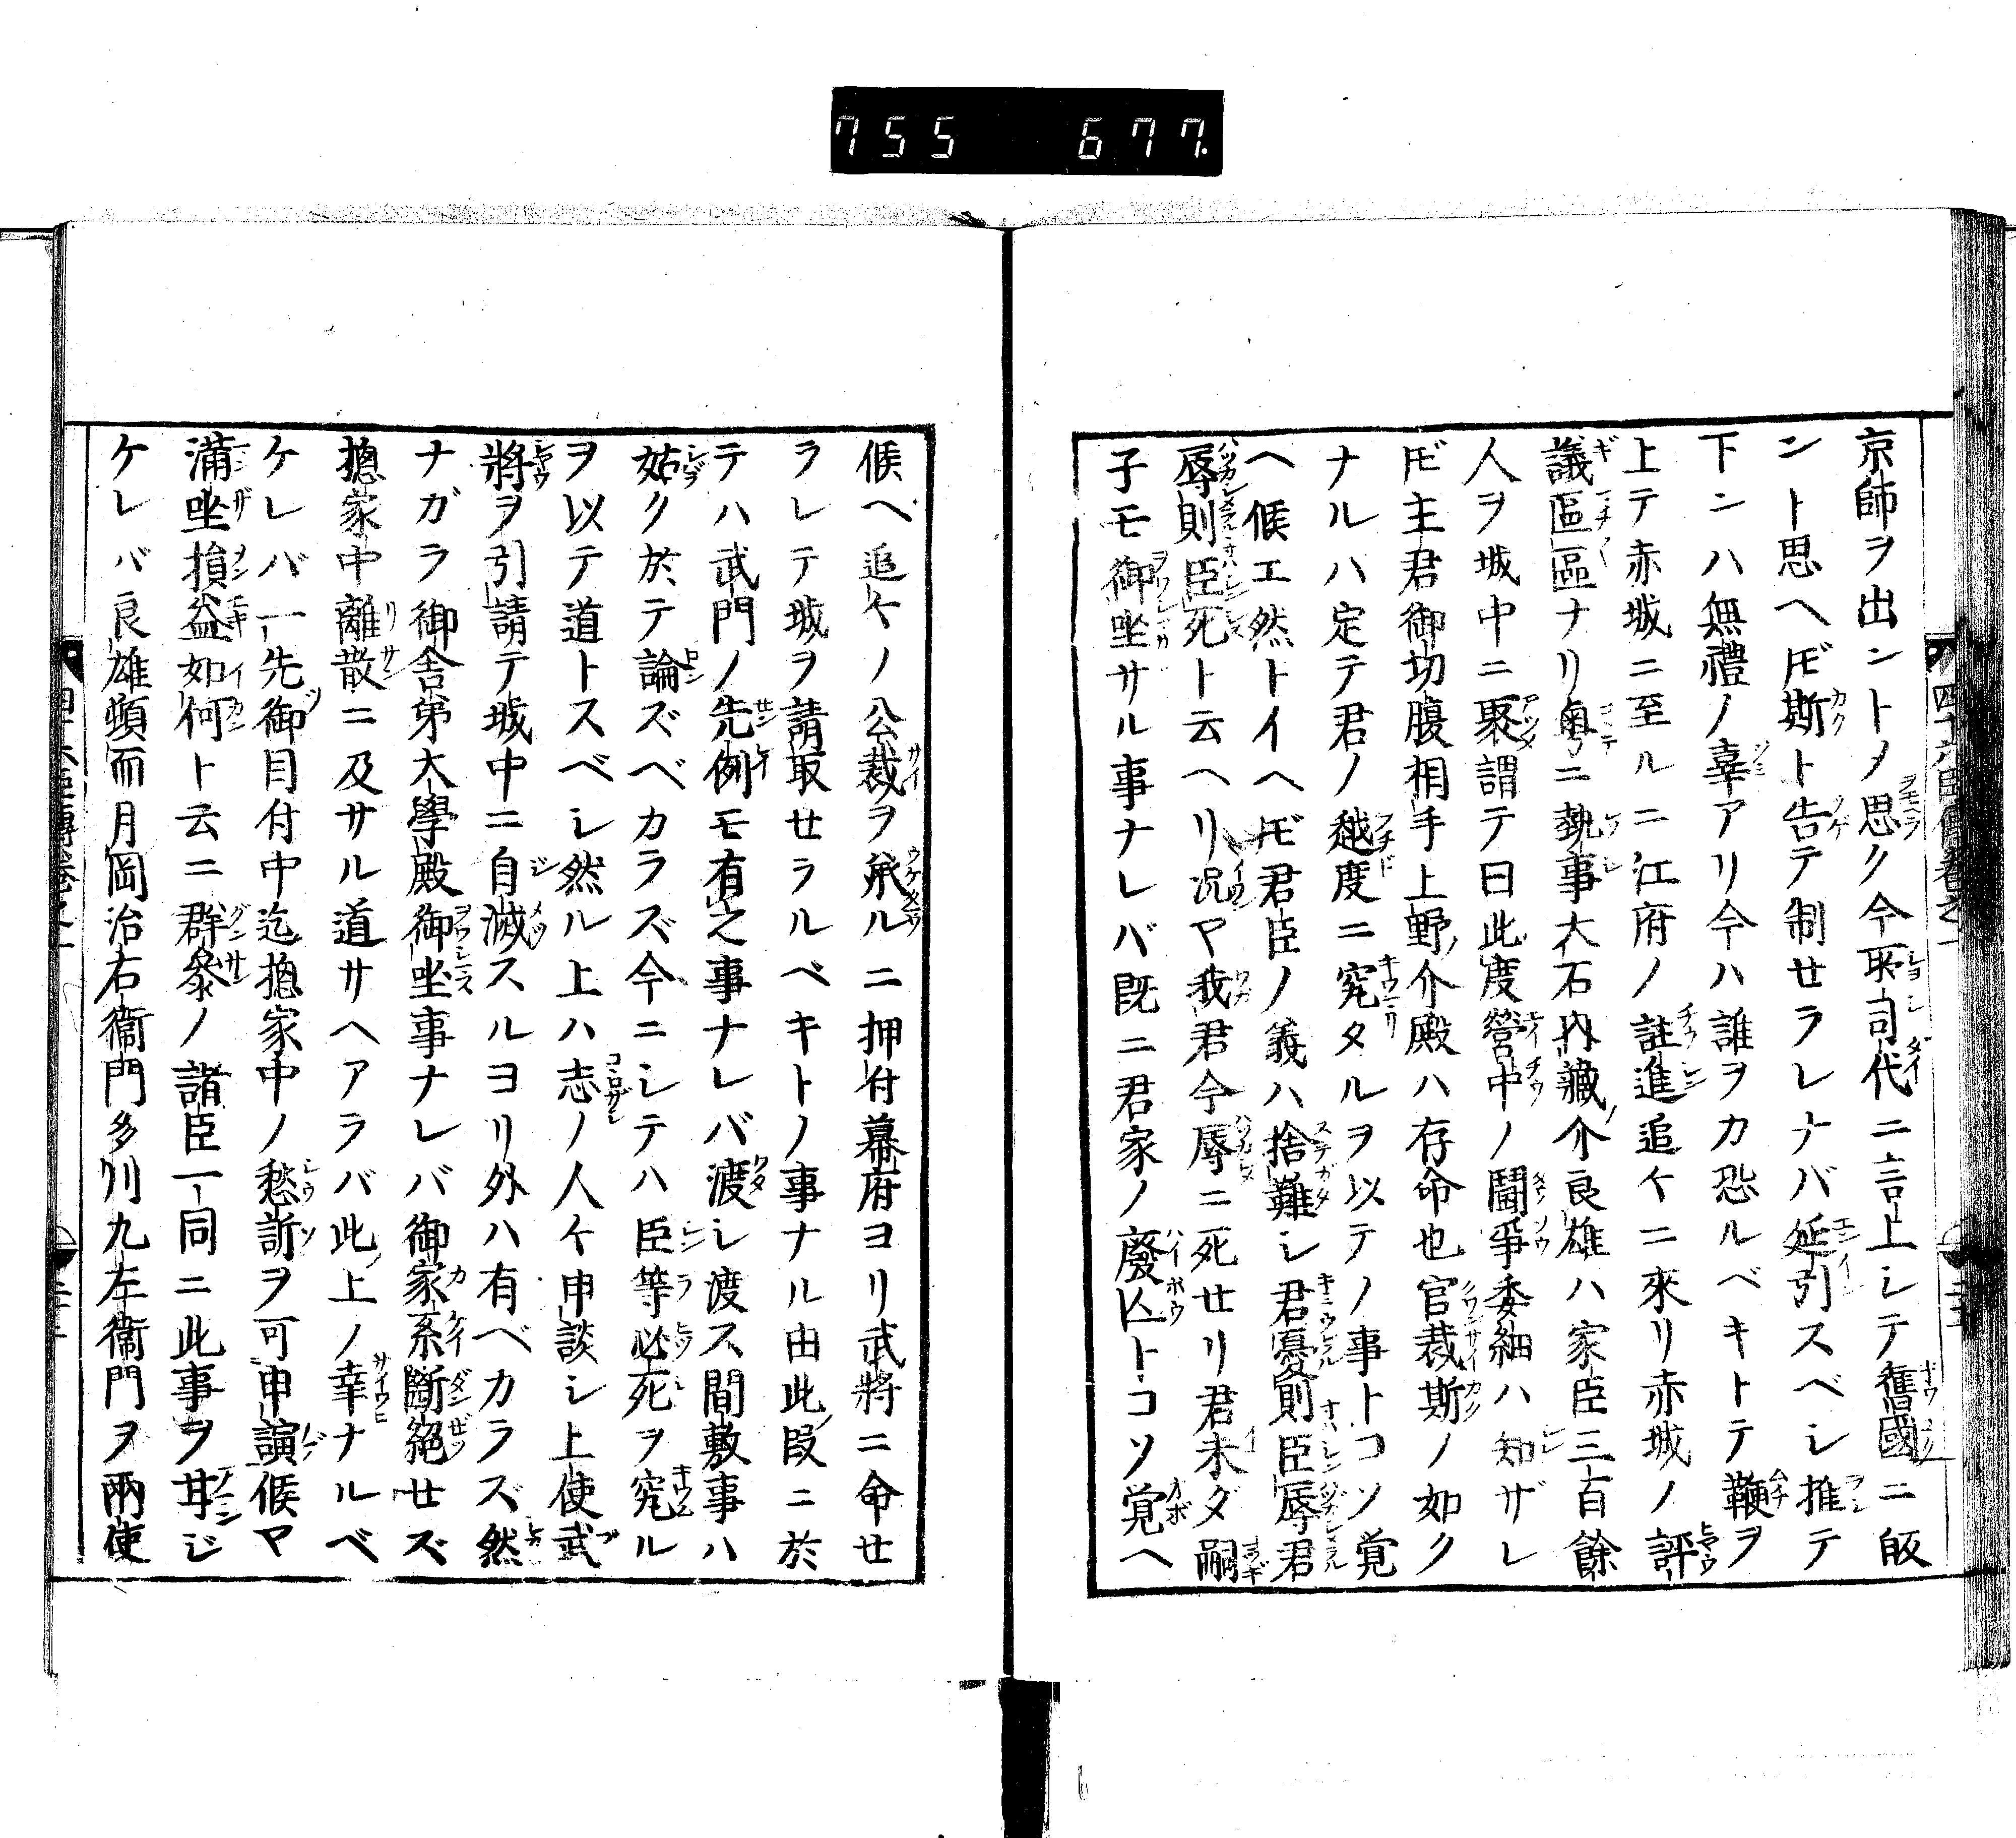 755 677.
京師ヲ出ントメ思ク今所司代ニ言上シテ舊國ニ皈
ント思ヘ𪜈斯ト告テ制セラレナバ延引スベシ推テ
下ンハ無禮ノ辜アリ今ハ誰ヲカ恐ルベキトテ鞭ヲ
上テ赤城ニ至ルニ江府ノ註進追ケニ來リ赤城ノ評
議區區ナリ粤ニ執事大石内藏介良雄ハ家臣三百餘
人ヲ城中ニ聚謂テ曰此度營中ノ鬪爭委細ハ知ザレ
𪜈主君御切腹相手上野介殿ハ存命也官裁斯ノ如ク
ナルハ定テ君ノ越度ニ究タルヲ以テノ事トコソ覚
ヘ候エ然トイヘ𪜈君臣ノ義ハ捨難シ君憂則臣辱君
辱則臣死ト云ヘリ況ヤ我君今辱ニ死セリ君未ダ嗣
子モ御坐サル事ナレバ既ニ君家ノ廢亾トコソ覚ヘ
候ヘ追ケノ公裁ヲ承ルニ押付幕府ヨリ武將ニ命セ
ラレテ城ヲ請取セラルベキトノ事ナル由此段ニ於
テハ武門ノ先例モ有之事ナレバ渡シ渡ス間敷事ハ
姑ク於テ論ズベカラズ今ニシテハ臣等必死ヲ究ル
ヲ以テ道トスベシ然ル上ハ志ノ人ケ申談シ上使武
將ヲ引請テ城中ニ自滅スルヨリ外ハ有ベカラズ然
ナガラ御舍弟大學殿御坐事ナレバ御家系斷絕セズ
摠家中離散ニ及サル道サヘアラバ此上ノ幸ナルベ
ケレバ一先御目付中迄摠家中ノ愁訴ヲ可申演候ヤ
滿坐損益如何ト云ニ群參ノ諸臣一同ニ此事ヲ甘ジ
ケレバ良雄頓而月岡治右衞門多川九左衞門ヲ兩使